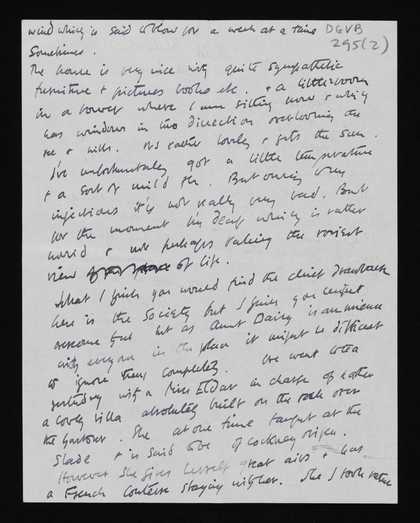 wind which is said to blow for a week at a time DGVB
Sometimes. 295(2)
The house is very nice with quite sympathetic
furniture + pictures books etc. + a little room
in a tower where I am sitting now + which
has windows in two direction overlooking the
sea + hills. It's rather lovely + gets the sun.
I've unfortunately got a little temperature
+ a sort of mild flu. But owing to my
injections it's not really very bad. But
for the moment I'm deaf which is rather
horrid + not perhaps taking the rosiest
view of life.
What I think you would find the chief drawback
here is the Society but I think you might
overcome that but as Aunt Daisy is an
with everyone in the place it might be difficult
to ignore them completely. We went to tea
yesterday with a Miss Eldar in charge of rather
a lovely villa absolutely built on the rock over
the harbour. She at one time taught at the
Slade + is said to be of cockney origin.
However she gives herself great airs + has
a French Contesse staying with her. She I took rather